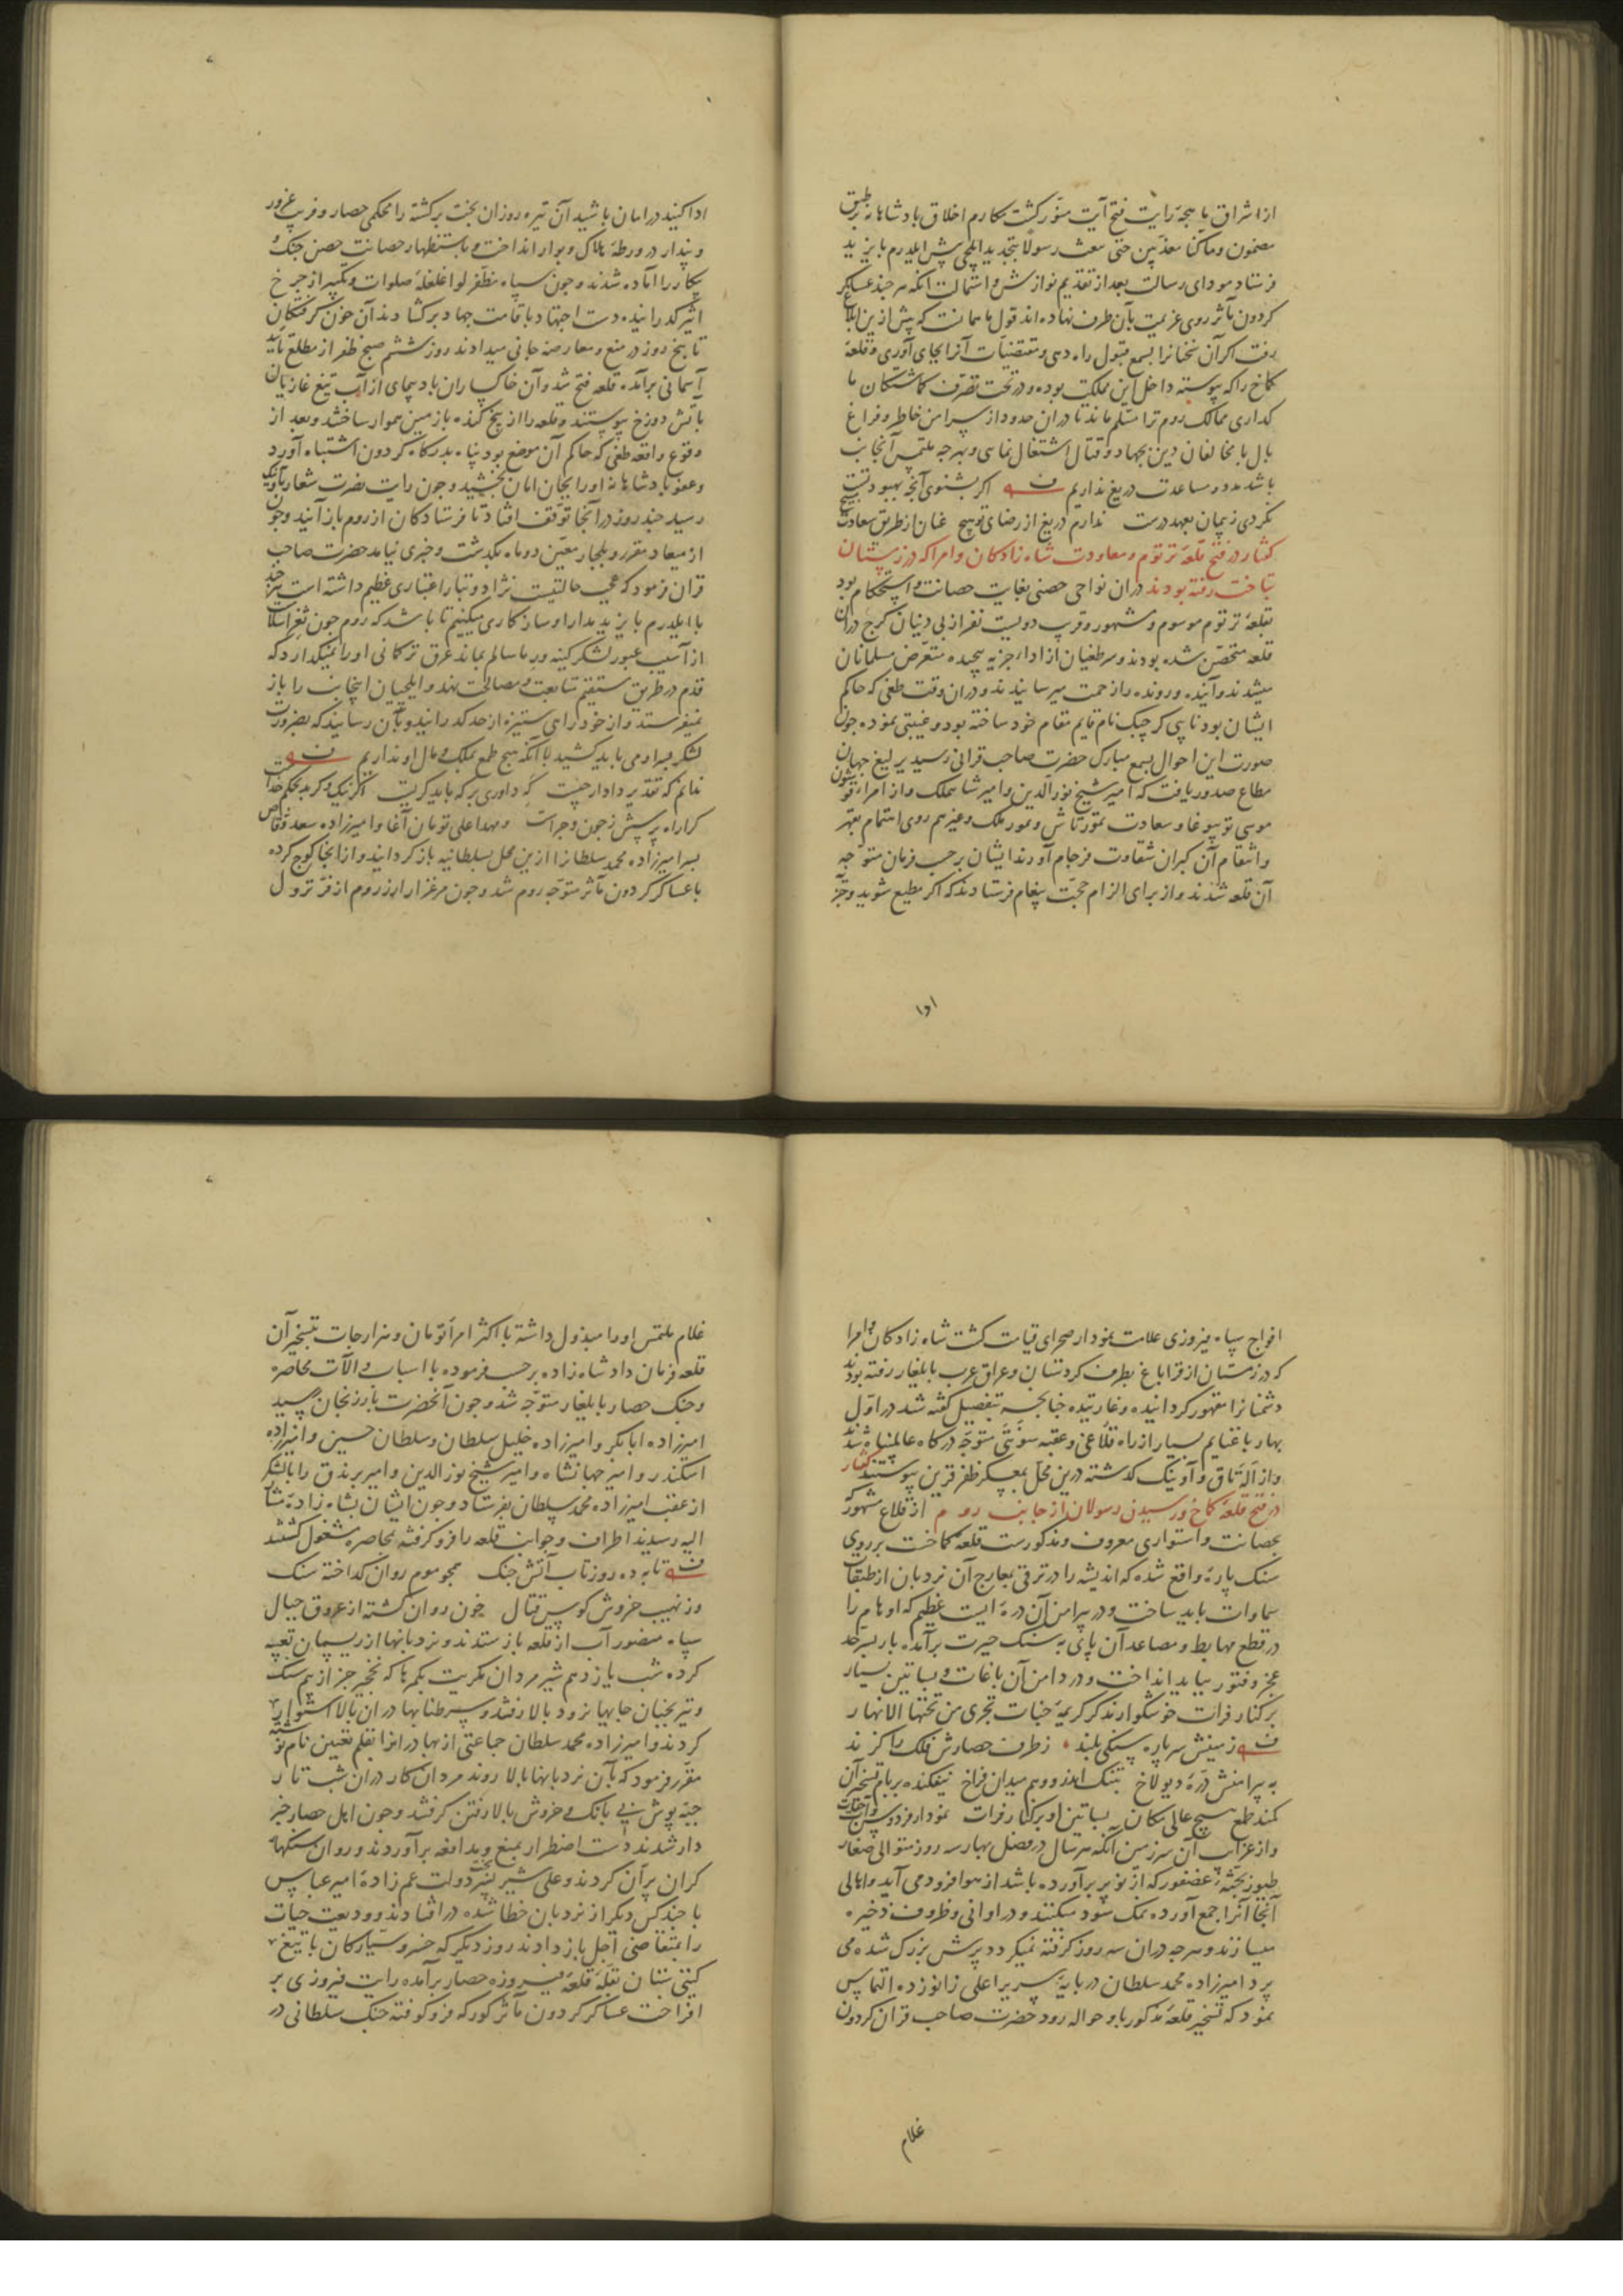 از اشراق باهجهٔ رایت فتح آیت منوّر کشت مکارم اخلاق بادشاهانه بر طبق
مضمون وماکنا معذبین حتی نبعث رسولا بتجدید ایلچی پیش ایلدرم بایزید
فرستاد مودای رسالت بعد از تقدیم نوازش و استمالت انکه هر چند عساکر
کردون مآثر روی عزیمت بآن طرف نهاده اند قول ما همانست که پیش ازین ابلاغ
رفت اکر آن سخنانرا بسمع قبول راه دهی و مقتضیات آنرا بجای آوری و قلعهٔ
کماخ را که پیوسته داخل این مملکت بوده و در تحت تصرّف کماشتکان ما
کذاری ممالک روم ترا مسلم ماند تا دران حدود از سر امن خاطر و فراغ
بال با مخالفان دین بجهاد و قتال اشتغال نمایی و بهرجه ملتمس آنجانب
باشد مدد و مساعدت دریغ نداریم اکر بشنوی آنچه بهبود تست
نکردی ز پیمان بعهد درست ندارم دریغ از رضای تو هیچ عنان از طریق سعادت مپیچ
کفتار در فتح قلعهٔ ترتوم و معاودت شاه زادکان و امرا که در زمستان
بتاخت رفته بودند دران نواحی حصنی بغایت حصانت و استحکام بود
بقلعهٔ ترتوم موسوم و مشهور و قرب دویست نفر از بی دینان کرج دران
قلعه متحصّن شده بودند و سر طغیان از اداء جزیه پیچیده متعرّض مسلمانان
میشدند و آینده و رونده را زحمت میرسانیدند و دران وقت طغی که حاکم
ایشان بود نایبی کرجبک نام قایم مقام خود ساخته بود و غیبتی نموده جون
صورت این احوال بسمع مبارک حضرت صاحب قرانی رسید یرلیغ جهان
مطاع صدور یافت که امیر شیخ نور الدین و امیر شاه ملک و از امراء قوشون
موسی توی بوغا و سعادت تمورتاش و تمور ملک و غیرهم روی اهتمام بقهر
و انتقام آن کبران شقاوت فرجام آورند ایشان بر حسب فرمان متوجّه
آن قلعه شدند و از برای الزام حجّت پیغام فرستادند که اکر مطیع شوید و جزیه
ادا
ادا کنید در امان باشید آن تیره روزان بخت برکشته را محکمی حصار و فریب غرور
و پندار در ورطهٔ هلاک و بوار انداخت و باستظهار حصانت حصن جنک و
پیکار را آماده شدند و جون سپاه مظفّر لوا غلغلهٔ صلوات و تکبیر از جرخ
اثیر کذرانیده دست اجتهاد باقامت جهاد برکشادند آن خون کرفتکان
تا پنج روز در منع و معارضه جانی میدادند روز ششم صبح ظفر از مطلع تایید
آسمانی برآمده قلعه فتح شد و آن خاکساران بادپیمای از آب تیغ غازیان
بآتش دوزخ پیوستند و قلعه را از بیخ کنده با زمین هموار ساختند و بعد از
وقوع واقعه طغی که حاکم آن موضع بود پناه بدرکاه کردون اشتباه آورد
و عفو پادشاهانه او را بجان امان بخشید و جون رایت نصرت شعار باونیک
رسید جند روز در آنجا توقف افتاد تا فرستادکان از روم باز آیند و جون
از میعاد مقرر و بلجار معیّن دو ماه بکذشت و خبری نیامد حضرت صاحب
قران فرمود که عجب حالتیست نژاد و تبار اعتباری عظیم داشته است هرچند
با ایلدرم بایزید بمدارا و سازکاری میکنیم تا باشد که روم جون ثغر اسلام
از آسیب عبور لشکر کینه ور ما سالم بماند عرق ترکمانی او را نمیکذارد که
قدم در طریق مستقیم متابعت و مصالحت نهد و ایلچیان اینجانب را باز
نمیفرستد و از خود رایی ستیزه از حد کذرانید و بآن رسانید که بضرورت
لشکر بر او می باید کشید با آنکه هیچ طمع بملک و مال او نداریم
ندانم که تقدیر دادار چیست که داوری بر که باید کریست اکر نیک وکر بد بحکم خداست
کرا راه پرسش ز جون و جراست و مهد اعلی تومان آغا و امیرزاده سعد وقاص
پسر امیرزاده محمد سلطانرا ازین محل بسلطانیه باز کردانید و از آنجا کوج کرده
با عساکر کردون مآثر متوجّه روم شد و جون مرغزار ارزروم از فرّ نزول
افواج سپاه فیروزی علامت نمودار صحرای قیامت کشت شاه زادکان و امرا
که در زمستان از قراباغ بطرف کردستان و عراق عرب بایلغار رفته بودند
دشمنانرا مقهور کردانیده و غارتیده چنانچه بتفصیل کفته شد در اوّل
بهار با غنایم بسیار از راه قلاغی و عقبه سونتی متوجّه درکاه عالمپناه شدند
و از آلاتاق و آونیک کذشته درین محلّ بمعسکر ظفر قرین پیوستند کفتار
در فتح قلعهٔ کماخ و رسیدن رسولان از جانب روم از قلاع مشهور که
بحصانت و استواری معروف و مذکورست قلعهٔ کماخست بر روی
سنک پارهٔ واقع شده که اندیشه را در ترقی بمعارج آن نردبان از طبقات
سماوات باید ساخت و در پیرامن آن درهٔ ایست عظیم که اوهام را
در قطع مهابط و مصاعد آن پای به سنک حیرت برآمده بار بسرحد
عجز و فتور بباید انداخت و در دامن آن باغات و بساتین بسیار
بر کنار فرات خوشکوار تذکر کریمهٔ جنات تجری من تحتها الانهار
زمینش سر پاره سنکی بلند ز طرف حصارش فلک را کزند
به پیرامنش درّهٔ دیولاخ بتنک اندرو وهم میدان فراخ نیفکنده بر بام تسخیر آن
کمند طمع هیچ عالی مکان بساتین او بر کنار فرات نمودار فردوس و آب حیات
و از غرایب آن سرزمین آنکه هر سال در فصل بهار سه روز متوالی صغار
طیور بجثّهٔ عصفور که از نو پر برآورده باشد از هوا فرود می آید و اهالی
آنجا آنرا جمع آورده نمک سود میکنند و در اوانی و ظروف ذخیره
میسازند و هر جه دران سه روز کرفته نمیکردد پرش بزرک شده می
پرد امیرزاده محمد سلطان در پایهٔ سریر اعلی زانو زده التماس
نمود که تسخیر قلعهٔ مذکور باو حواله رود حضرت صاحب قران کردون
غلام
غلام ملتمس او را مبذول داشته با اکثر امراء تومان و هزارجات بتسخیر آن
قلعه فرمان داد شاه زاده بر حسب فرموده با اسباب و الآت محاصره
و جنک حصار بایلغار متوجّه شد و جون آنحضرت بارزنجان رسید
امیرزاده ابابکر و امیرزاده خلیل سلطان و سلطان حسین و امیرزاده
اسکندر و امیر جهانشاه و امیر شیخ نور الدین و امیر برندق را بالشکر
از عقب امیرزاده محمد سلطان بفرستاد و جون ایشان بشاه زادهٔ مشار
الیه رسیدند اطراف و جوانب قلعه را فرو کرفته بمحاصره مشغول کشتند
تا به ده روز تاب آتش جنک همجو موم روان کداخته سنک
وز نهیب خروش کوس قتال خون روان کشته از عروق جبال
سپاه منصور آب از قلعه باز ستدند و نردبانها از ریسمان تعبیه
کرده شب یازدهم شیر مردان مکریت بکمرها که نخجیر جز از بیم سک
و تیر بجنبان جایها نرود بالا رفتند و سر طنابها دران بالا استوار
کردند و امیرزاده محمد سلطان جماعتی از بهادرانرا بقلم تعیین نام نوشته
مقرّر فرمود که بآن نردبانها بالا روند مردان کار دران شب تار
جبّه پوش بی بانک و خروش بالا رفتن کرفتند و جون اهل حصار خبر
دار شدند دست اضطرار بمنع و مدافعه برآوردند و روان سنکهای
کران پرّان کردند و علی شیر بخت دولت عم زادهٔ امیر عباس
با جند کس دیکر از نردبان خطا شده در افتادند و ودیعت حیات
را بمتقاضی اجل باز دادند روز دیکر که خسرو سیّارکان با تیغ
کیتی ستان بقلهٔ قلعهٔ فیروزه حصار برآمده رایت فیروزی بر
افراخت عساکر کردون مآثر کورکه فرو کوفته جنک سلطانی در